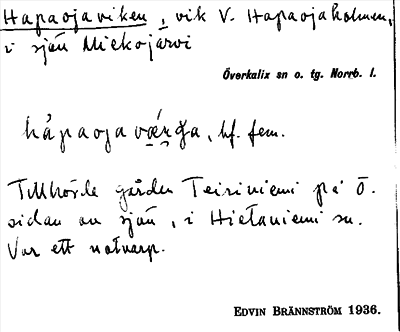 Hapaojaviken, vik V. Hapaojaholmen,
i sjön Miekojärvi
Överkalix sn o. tg. Norrb. l.
hàpaoja , bf. fem.
Tillhörde gården Teiriniemi på Ö.
sidan av sjön, i Hietaniemi sn.
Var ett notvarp.
EDVIN BRÄNNSTRÖM 1936.